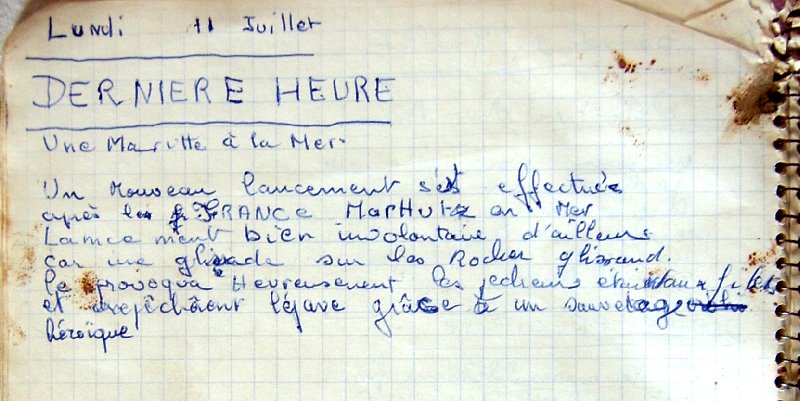 Lundi 11 Juillet
DERNIERE HEURE
Une Marutte à la Mer.
Un nouveau lancement s'est effectuée
après le FRANCE MarHutte en Mer
Lancement bien involontaire d'ailleurs
car une glissade sur les Rocher glissand.
le provoqua Heureusement les pecheurs étaient aux filets
et repêchèrent l'épave grâce à un sauvetage
héroïque